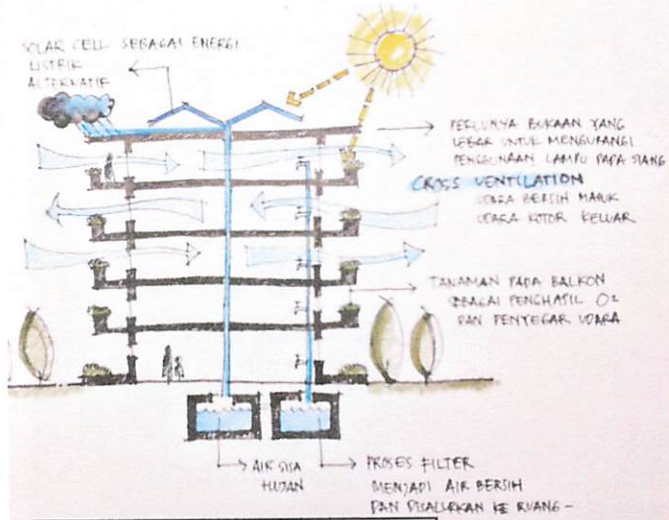 SOLAR CELL SEBAGAI ENERGI
LISTRIK
ALTERNATIF
PERLUNYA BUKAAN YANG
LEBAR UNTUK MENGURANGI
PENGGUNAAN LAMPU PADA SIANG
CROSS VENTILATION
UDARA BERSIH MASUK
UDARA KOTOR KELUAR
TANAMAN PADA BALKON
SEBAGAI PENGHASIL O2
DAN PENYEGAR UDARA
AIR SISA
HUJAN
PROSES FILTER
MENJADI AIR BERSIH
DAN DISALURKAN KE RUANG-